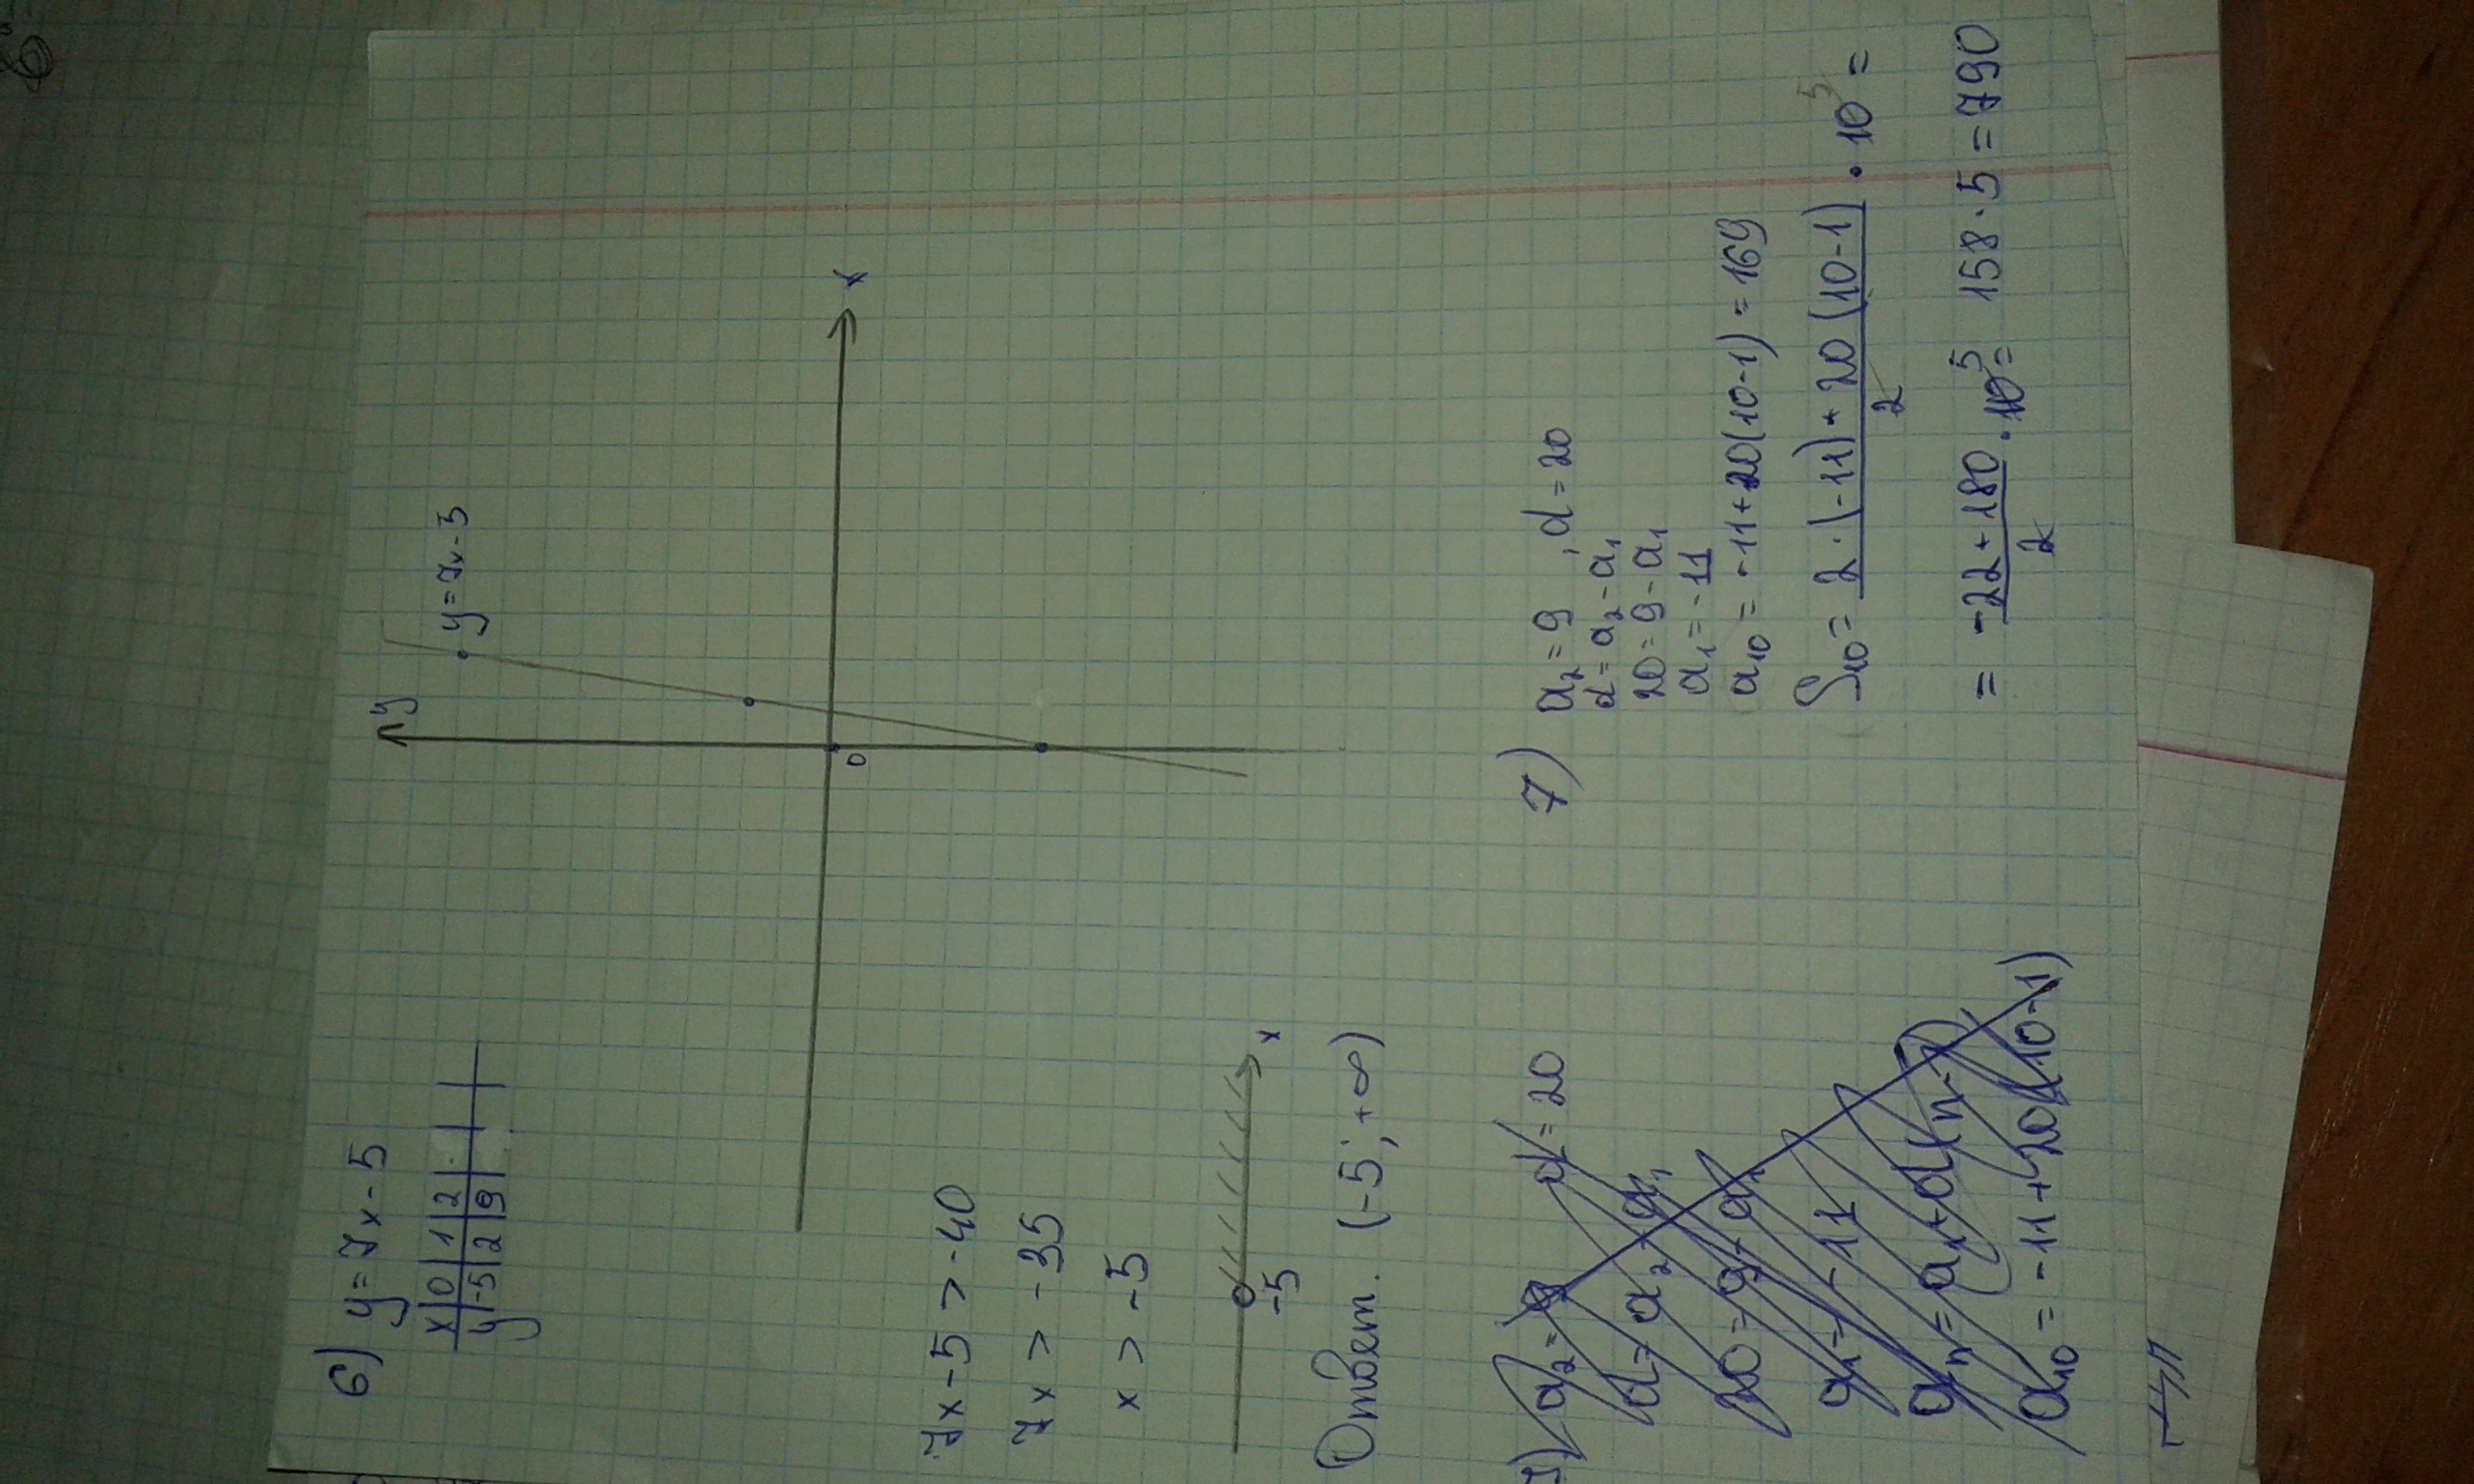 6) y = 7x - 5
x | 0 | 1 | 2 |
y | -5 | 2 | 9 |
y
y = 7x - 5
x
0
7x - 5 > -40
7x > -35
x > -5
-5
x
Ответ. (-5; +∞)
a₂ = 9 d = 20
d = a₂ - a₁
20 = 9 - a₁
a₁ = -11
aₙ = a₁ + d(n-1)
a₁₀ = -11 + 20(10-1)
7) a₂ = 9, d = 20
d = a₂ - a₁
20 = 9 - a₁
a₁ = -11
a₁₀ = -11 + 20(10-1) = 169
S₁₀ = (2·(-11) + 20(10-1))/2 · 10 5 =
= (-22 + 180)/2 · 10 5 = 158 · 5 = 790